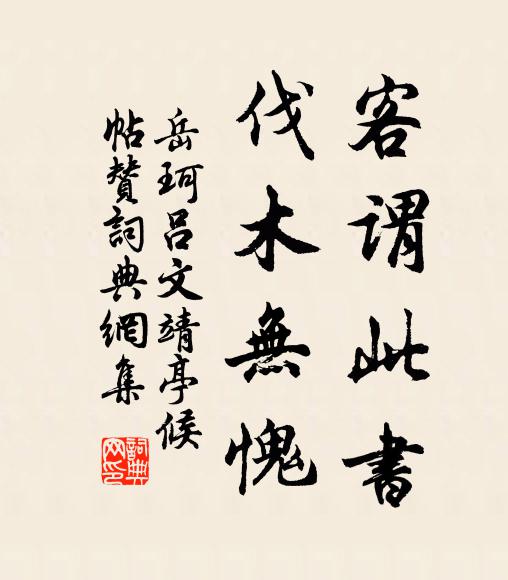 客谓此書
伐木無愧
岳珂呂文靖亭候
帖賛詞典網集
詞典网印